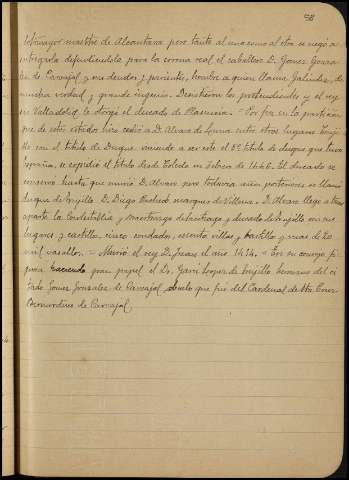 38
Sotomayor maestre de Alcantara pero tanto al uno como al otro se negó a
entregarla defendiendola para la corona real el caballero D. Gomez Gonza
lez de Carvajal y sus deudos y parientes, hombre a quien llama Galindez, de
mucha verdad y grande ingenio. Desistieron los pretendientes y el rey
en Valladolid le otorgó el ducado de Plasencia. - Por fin en la particion
que de estos estados hizo cedió a D. Alvaro de Luna entre otros lugares Truji-
llo con el titulo de Duque viniendo a ser este el 5º titulo de duque que hubo
España, se expidió el titulo desde Toledo en Febrero de 1446. El ducado se
conservo hasta que murió D. Alvaro pero todavia años posteriores se llamó
duque de Trujillo D. Diego Pacheco marques de Villena. D. Alvaro llegó a tener
aparte la Condestablia y Maestrazgo de Santiago y ducado de Trujillo con sus
lugares y castillo, cinco condados, sesenta villas y castillo y mas de 20
mil vasallos. - Murió el rey D. Juan el año 1454. - En su consejo fi
gura haciendo gran papel el Dr. Garci Lopez de Trujillo hermano del ci
tado Gomez Gonzalez de Carvajal, abuelo que fué del Cardenal de Sta Cruz
Bernardino de Carvajal